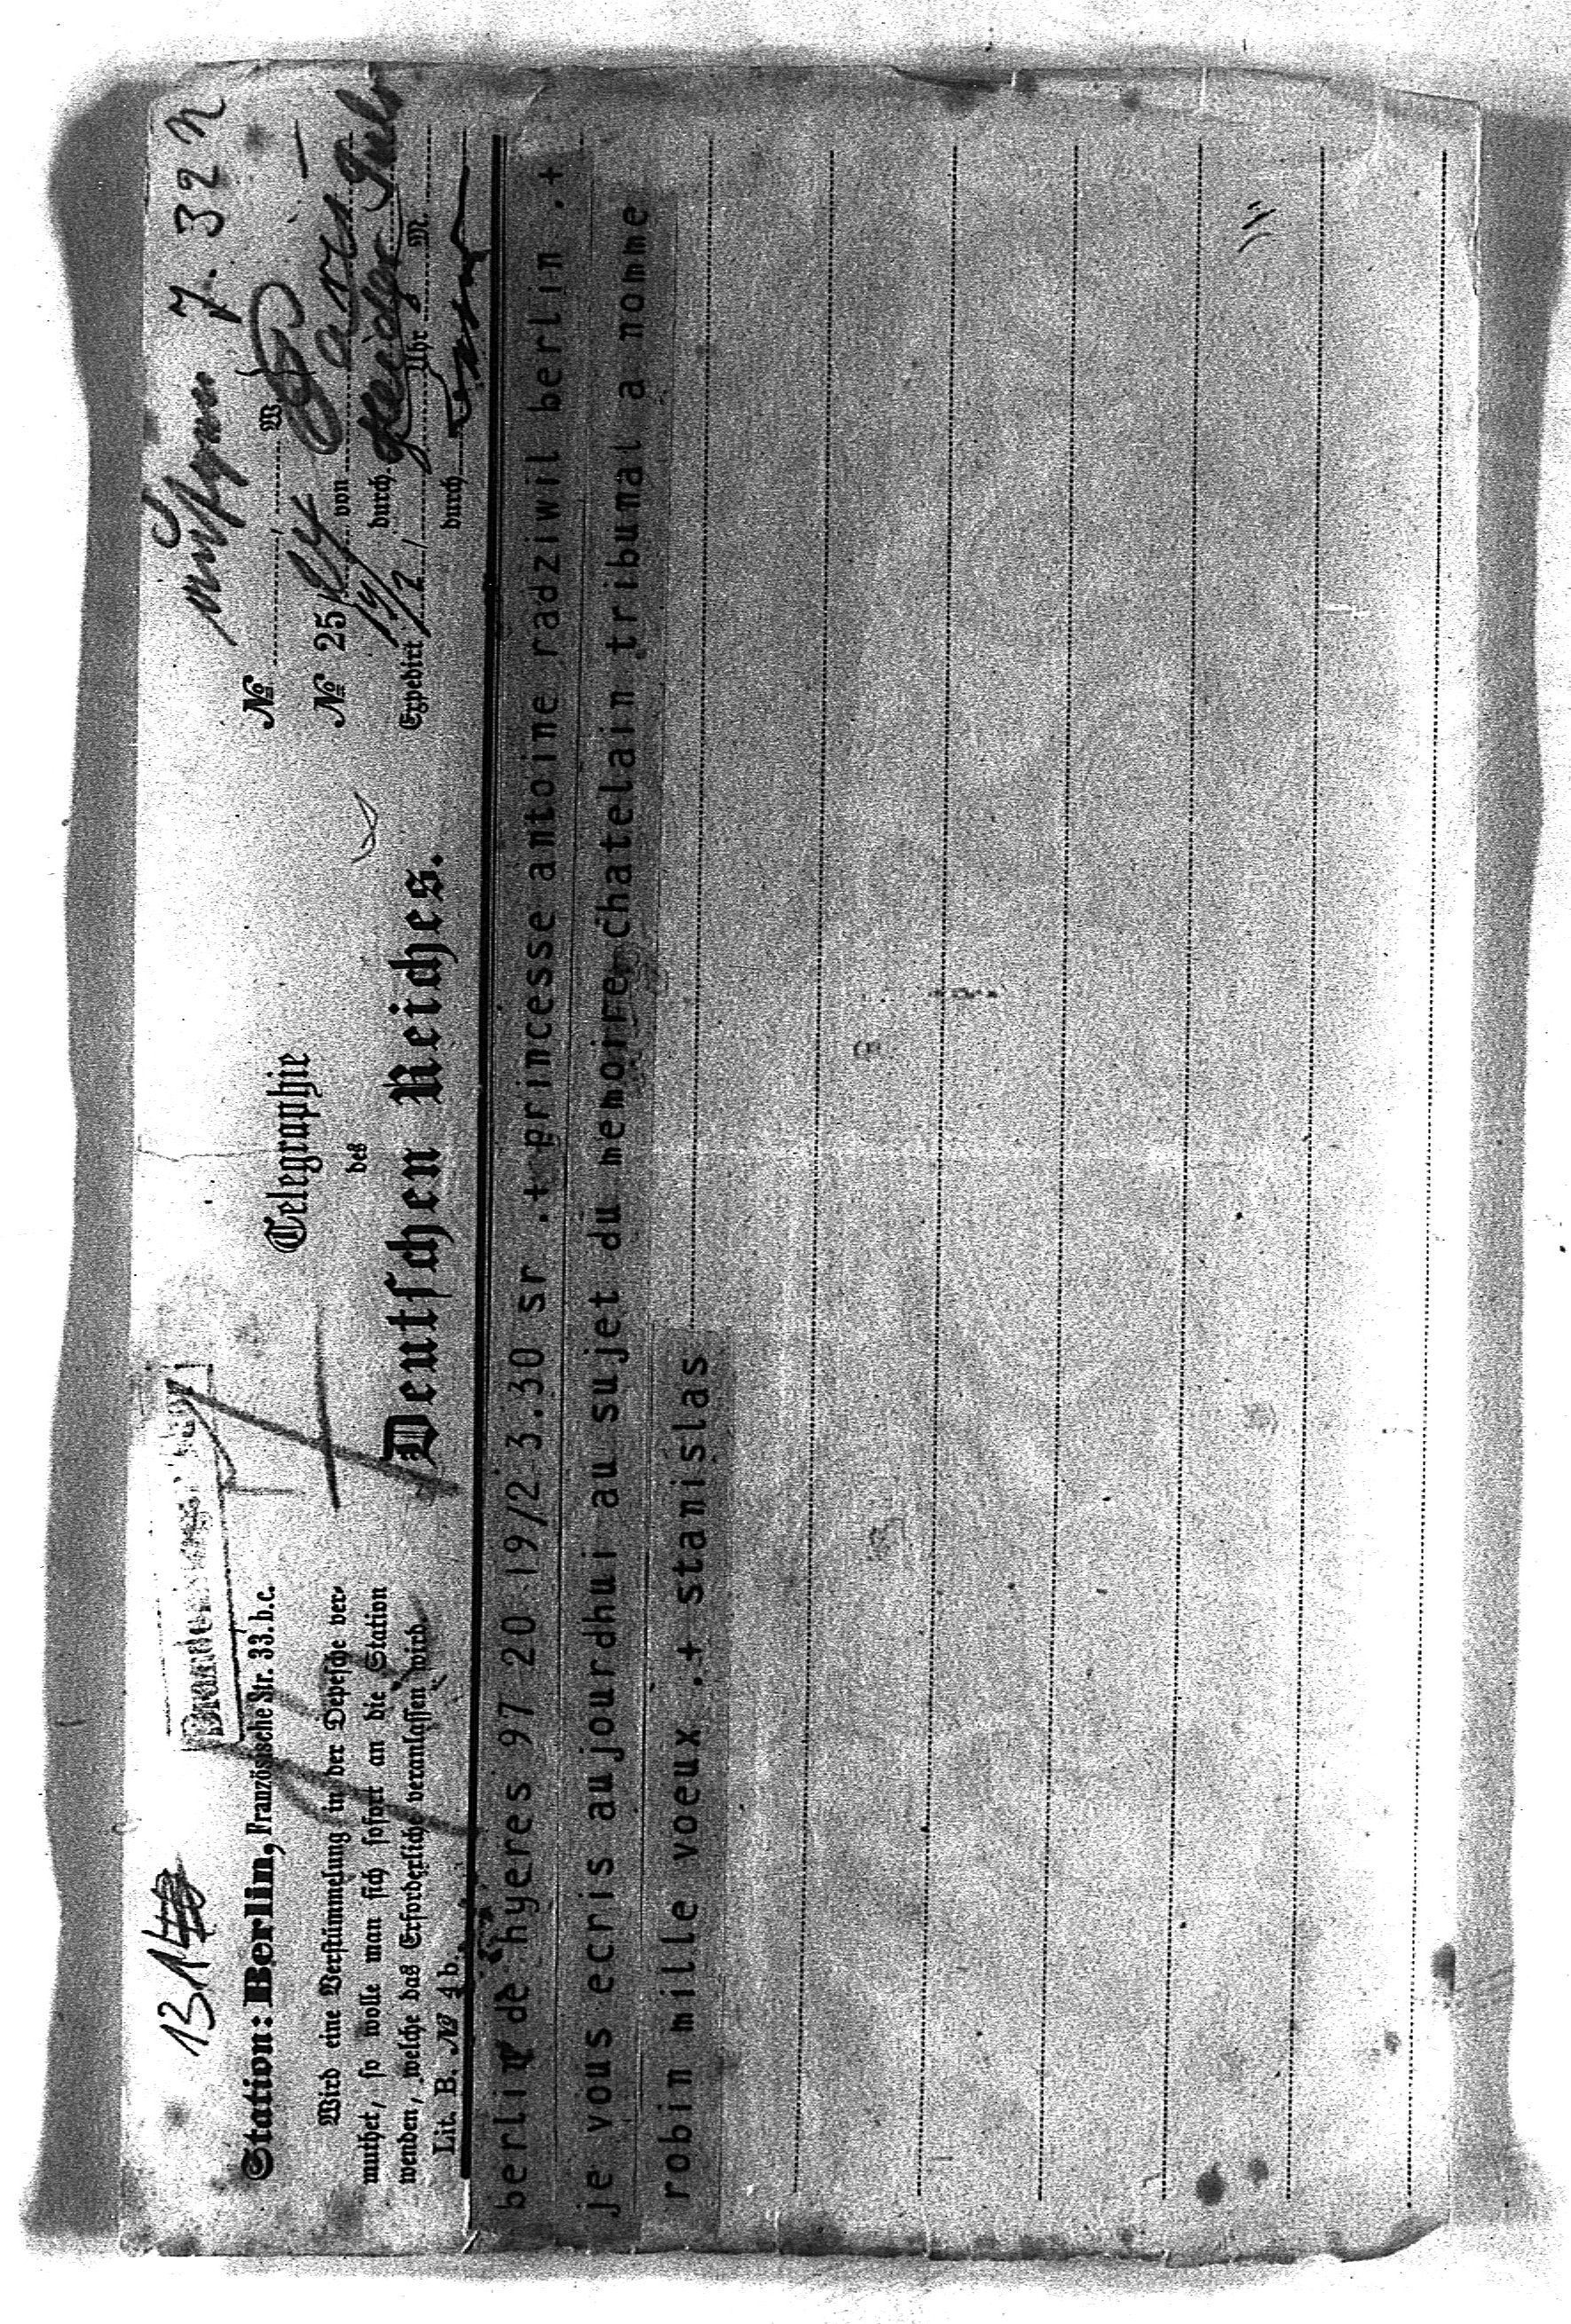 1314
Station: Berlin, Französische Str. 33.b.c.
Wird eine Verstümmelung in der Depesche ver-
muthet, so wolle man sich sofort an die Station
wenden, welche das Erforderliche veranlassen wird.
Lit. B. № 4 b.
Telegraphie
des
Deutschen Reiches.
7. 32 N
№ W
№ 25 von Paris
durch
Expedirt / Uhr M.
durch
berlin de hyeres 97 20 19/2 3.30 sr .+ princesse antoine radziwil berlin .+
je vous ecris aujourdhui au sujet du memoire chatelain tribunal a nomme
robin mille voeux .+ stanislas